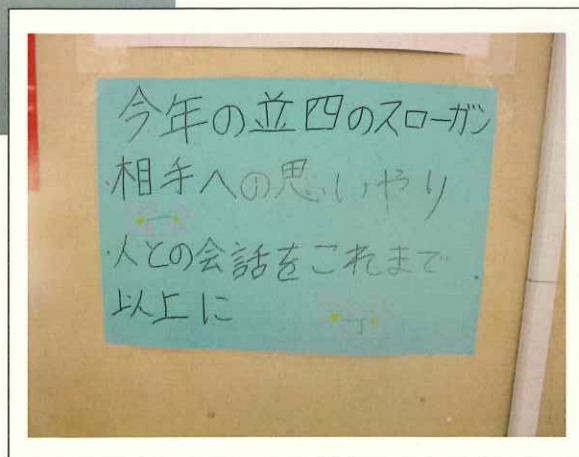 今年の並四のスローガン
・相手への思いやり
・人との会話をこれまで
以上に